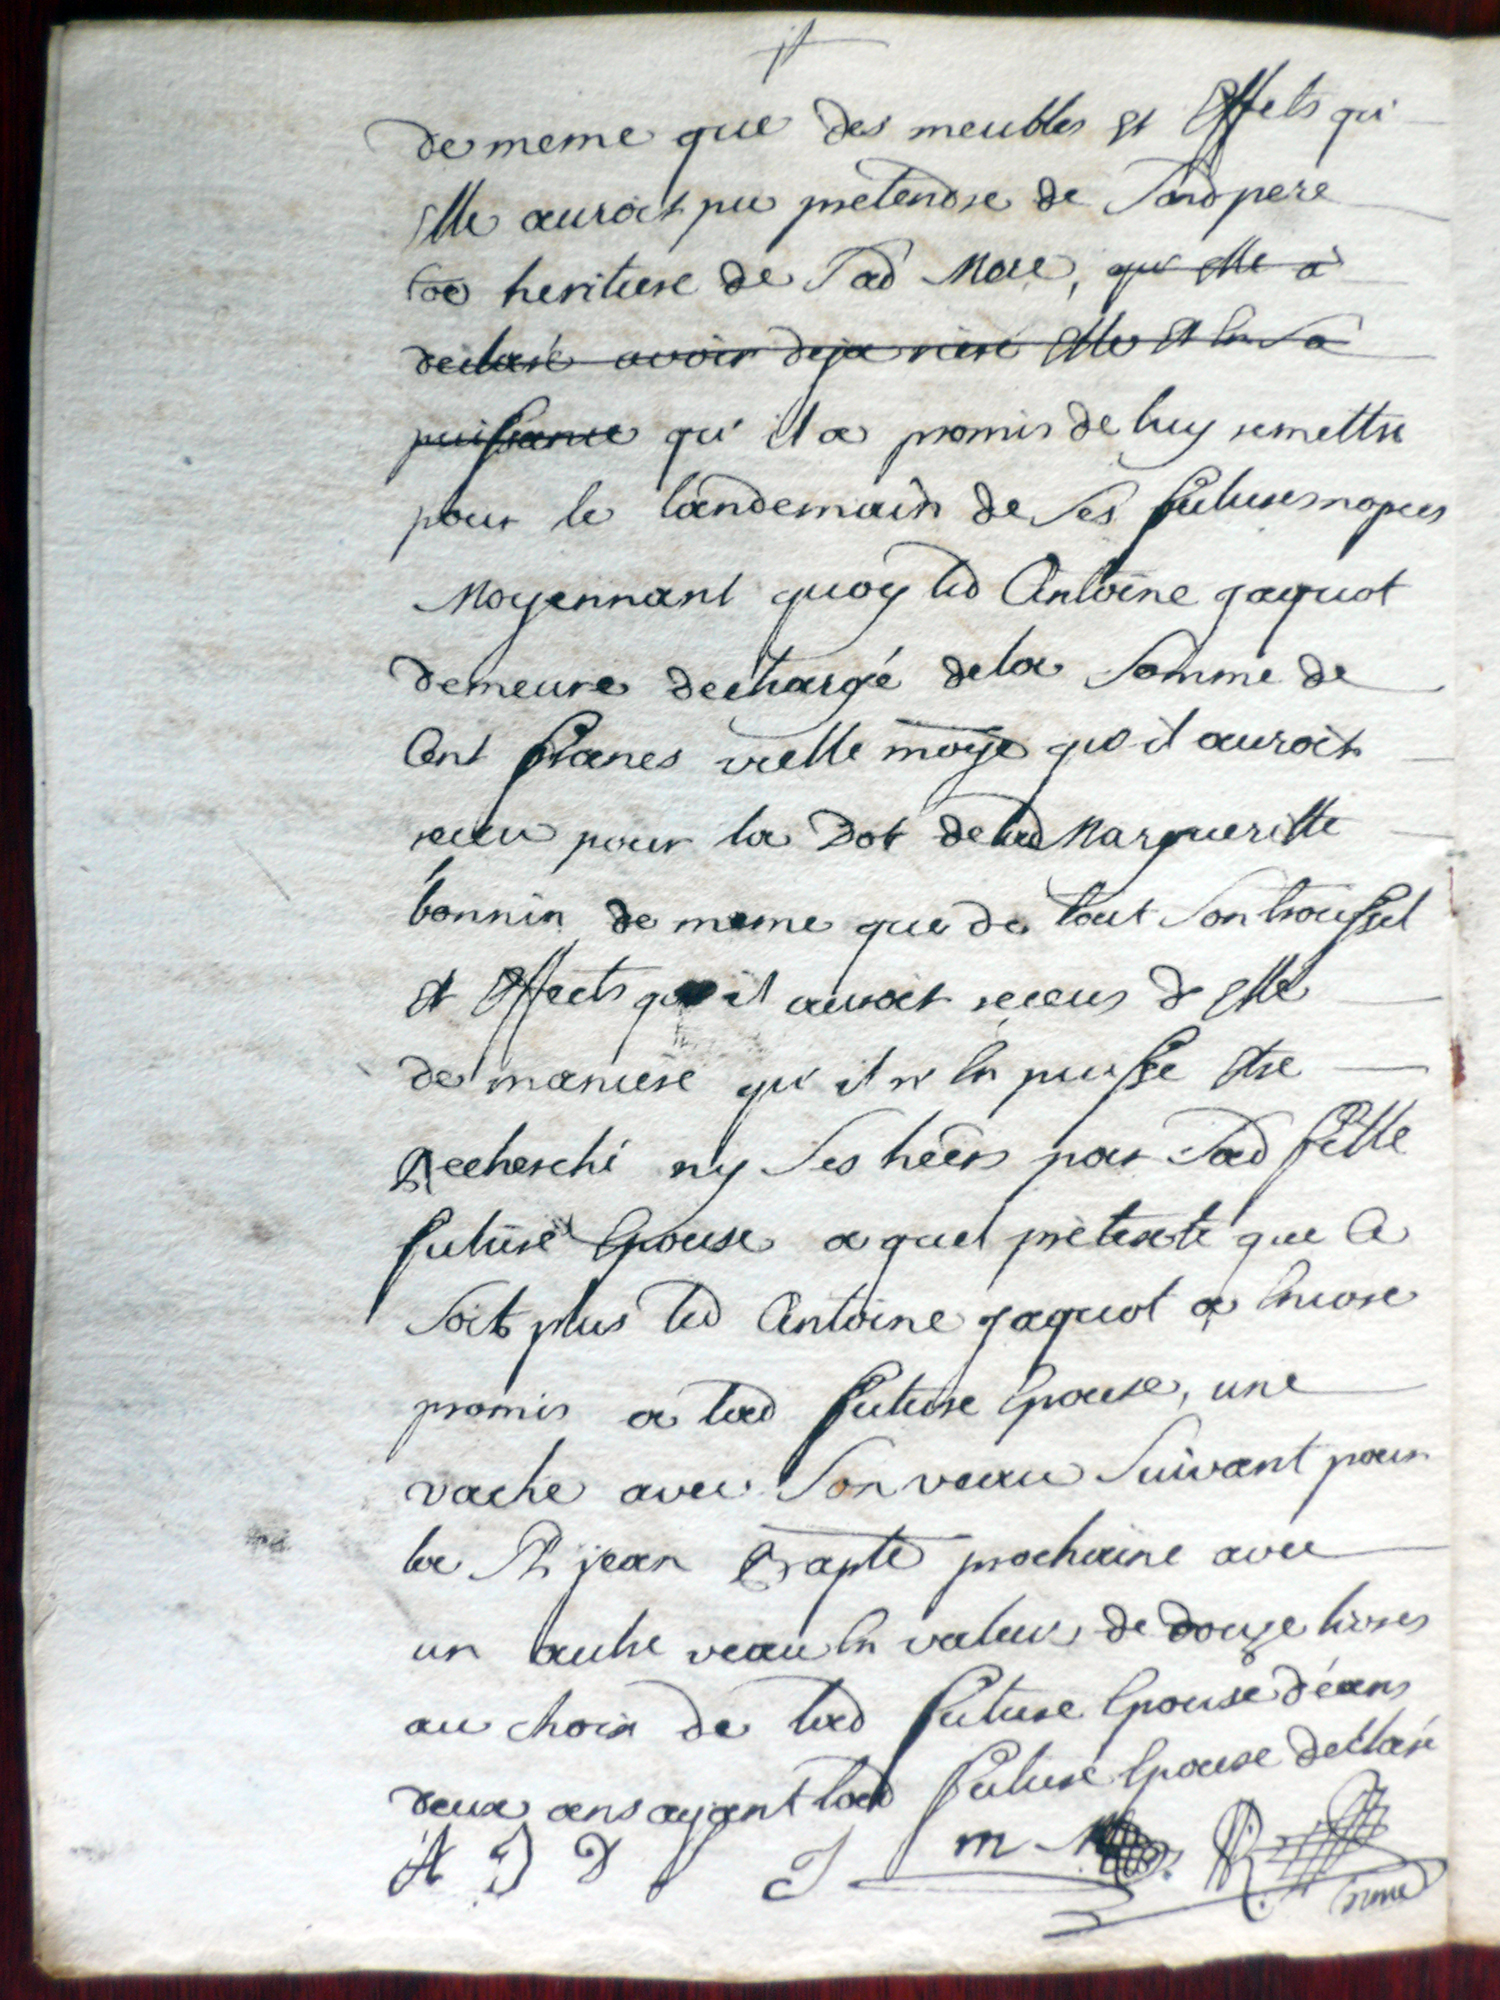 de meme que des meubles et Effets qu'
Elle auroit pu pretendre de Sond pere
coe heritiere de Sad Mere, qu' elle a
declaré avoir deja riere Elle et En Sa
puissance qu' il a promis de luy remettre
pour le landemain de Ses futures nopces
Moyennant quoy led Antoine jaquot
demeure dechargé de la Somme de
Cent francs vielle moye qu'il auroit
receu pour la Dot de lad Margueritte
bonnin de meme que de tout Son troussel
et Effects qu il auroit receus d Elle
de maniere qu' il n' En puisse Etre
Recherché ny Ses heirs par Sad fille
future Epouse a quel pretexte que Ce
Soit plus led Antoine jaquot a Encore
promis a lad future Epouse, une
vache avec Son veau Suivant pour
la St jean Baptte prochaine avec
un autre veau En valeur de douze livres
au choix de lad future Epouse d'éans
deux ans ayant lad future Epouse declaré
A J D J m